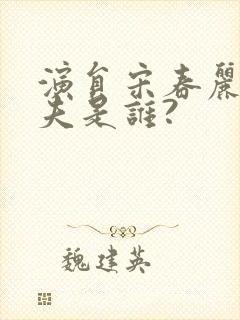 演員宋春麗
夫是誰?
魏建英